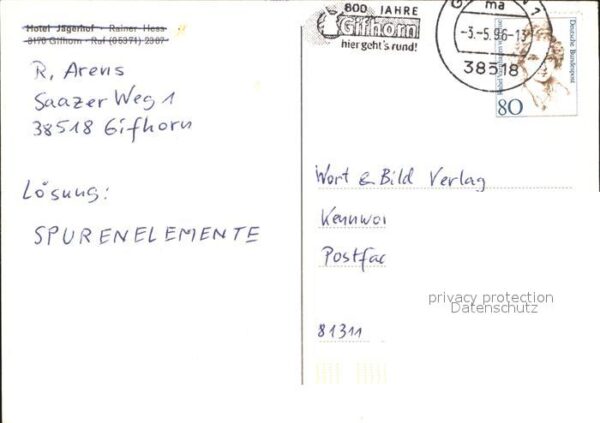 Hotel Jägerhof · Rainer Hess
3170 Gifhorn · Ruf (05371) 2307
R. Arens
Saazer Weg 1
38518 Gifhorn
Lösung:
SPURENELEMENTE
800 JAHRE
Gifhorn
hier geht's rund!
1
ma
-3.-5.96-13
38518
Deutsche Bundespost
80
Wort & Bild Verlag
Kennwor
Postfac
81311
privacy protection
Datenschutz